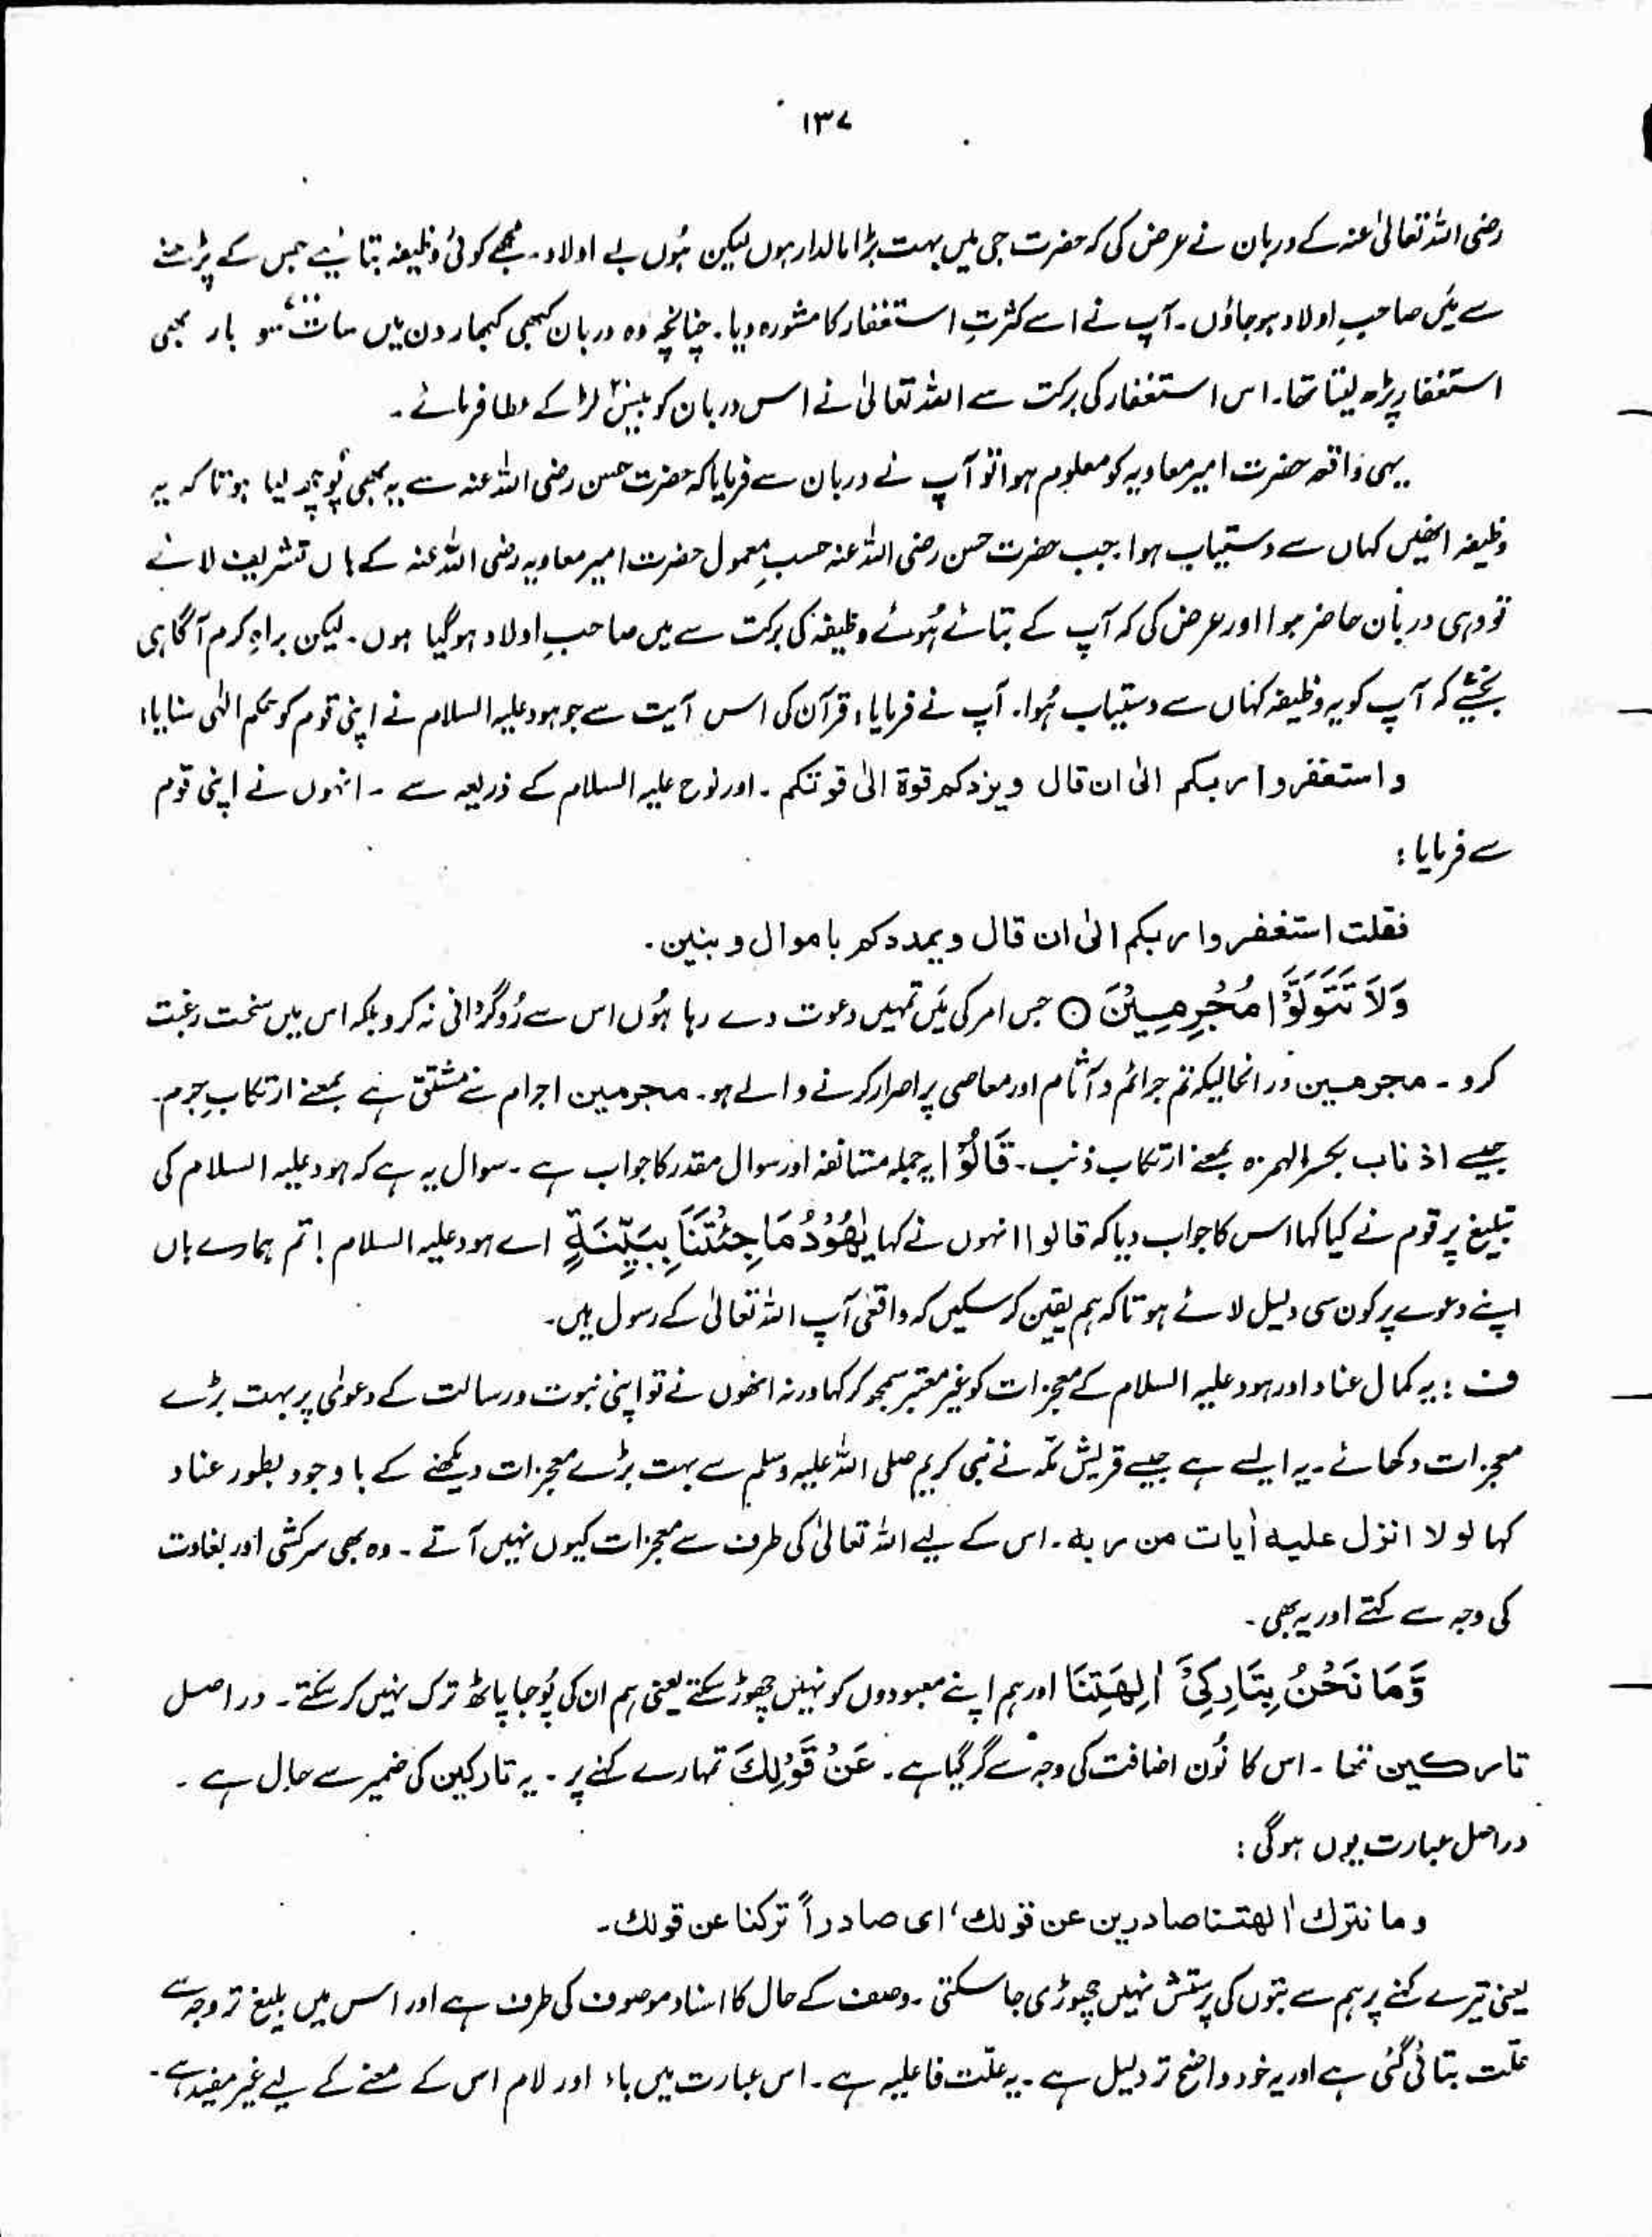 ۱۳۷
رضی اللہ تعالیٰ عنہ کے دربان نے عرض کی کہ حضرت جی میں بہت بڑا مالدار ہوں لیکن ہُوں بے اولاد۔ مجھے کوئی وظیفہ بتائیے جس کے پڑھنے
سے میَں صاحبِ اولاد ہو جاؤں۔ آپ نے اسے کثرتِ استغفار کا مشورہ دیا۔ چنانچہ وہ دربان کبھی کبھار دن میں سات سو بار بھی
استغفار پڑھ لیتا تھا۔ اس استغفار کی برکت سے اللہ تعالیٰ نے اس دربان کو بیس لڑکے عطا فرمائے۔
یہی واقعہ حضرت امیر معاویہ کو معلوم ہوا تو آپ نے دربان سے فرمایا کہ حضرت حسن رضی اللہ عنہ سے یہ بھی پُوچھ لیا ہوتا کہ یہ
وظیفہ انھیں کہاں سے دستیاب ہوا۔ جب حضرت حسن رضی اللہ عنہ حسبِ معمول حضرت امیر معاویہ رضی اللہ عنہ کے ہاں تشریف لائے
تو وہی دربان حاضر ہوا اور عرض کی کہ آپ کے بتائے ہُوئے وظیفہ کی برکت سے میں صاحبِ اولاد ہو گیا ہوں۔ لیکن براہِ کرم آگاہی
بخشیے کہ آپ کو یہ وظیفہ کہاں سے دستیاب ہُوا۔ آپ نے فرمایا، قرآن کی اس آیت سے جو ہود علیہ السلام نے اپنی قوم کو حکم الٰہی سنایا:
واستغفروا ربکم الیٰ ان قال ویزدکم قوۃ الیٰ قوتکم۔ اور نوح علیہ السلام کے ذریعہ سے ۔ انہوں نے اپنی قوم
سے فرمایا :
فقلت استغفروا ربکم الیٰ ان قال ویمددکم باموال وبنین۔
وَلَا تَتَوَلَّوْا مُجْرِمِیْنَ ○ جس امر کی میَں تمہیں دعوت دے رہا ہُوں اس سے رُوگردانی نہ کرو بلکہ اس میں سخت رغبت
کرو ۔ مجرمین درانحالیکہ تم جرائم و آثام اور معاصی پر اصرار کرنے والے ہو۔ مجرمین اجرام سے مشتق ہے بمعنے ارتکابِ جرم۔
جیسے اذناب بکسر الہمزہ بمعنے ارتکاب ذنب۔ قَالُوْا یہ جملہ مستانفہ اور سوال مقدر کا جواب ہے ۔ سوال یہ ہے کہ ہود علیہ السلام کی
تبلیغ پر قوم نے کیا کہا اس کا جواب دیا کہ قالوا انہوں نے کہا یٰھُوْدُ مَا جِئْتَنَا بِبَیِّنَۃٍ اے ہود علیہ السلام ! تم ہمارے ہاں
اپنے دعوے پر کون سی دلیل لائے ہو تاکہ ہم یقین کر سکیں کہ واقعی آپ اللہ تعالیٰ کے رسول ہیں۔
ف : یہ کمال عناد اور ہود علیہ السلام کے معجزات کو غیر معتبر سمجھ کر کہا ورنہ انھوں نے تو اپنی نبوت و رسالت کے دعوٰی پر بہت بڑے
معجزات دکھائے۔ یہ ایسے ہے جیسے قریش مکّہ نے نبی کریم صلی اللہ علیہ وسلم سے بہت بڑے معجزات دیکھنے کے باوجود بطور عناد
کہا لولا انزل علیہ اٰیات من ربہ۔ اس کے لیے اللہ تعالیٰ کی طرف سے معجزات کیوں نہیں آتے ۔ وہ بھی سرکشی اور بغاوت
کی وجہ سے کہتے اور یہ بھی۔
وَّمَا نَحْنُ بِتَارِکِیْٓ اٰلِھَتِنَا اور ہم اپنے معبودوں کو نہیں چھوڑ سکتے یعنی ہم ان کی پُوجا پاٹھ ترک نہیں کر سکتے۔ دراصل
تارکین تھا ۔ اس کا نُون اضافت کی وجہ سے گر گیا ہے۔ عَنْ قَوْلِكَ تمہارے کہنے پر ۔ یہ تارکین کی ضمیر سے حال ہے ۔
دراصل عبارت یوں ہوگی :
وما نترك اٰلھتنا صادرین عن قولك، ای صادراً ترکنا عن قولك۔
یعنی تیرے کہنے پر ہم سے بتوں کی پرستش نہیں چھوڑی جا سکتی ۔ وصف کے حال کا اسناد موصوف کی طرف ہے اور اس میں بلیغ تر وجہ سے
علّت بتائی گئی ہے اور یہ خود واضح تر دلیل ہے ۔ یہ علّت فاعلیہ ہے ۔ اس عبارت میں باء اور لام اس کے معنے کے لیے غیر مفید ہے۔